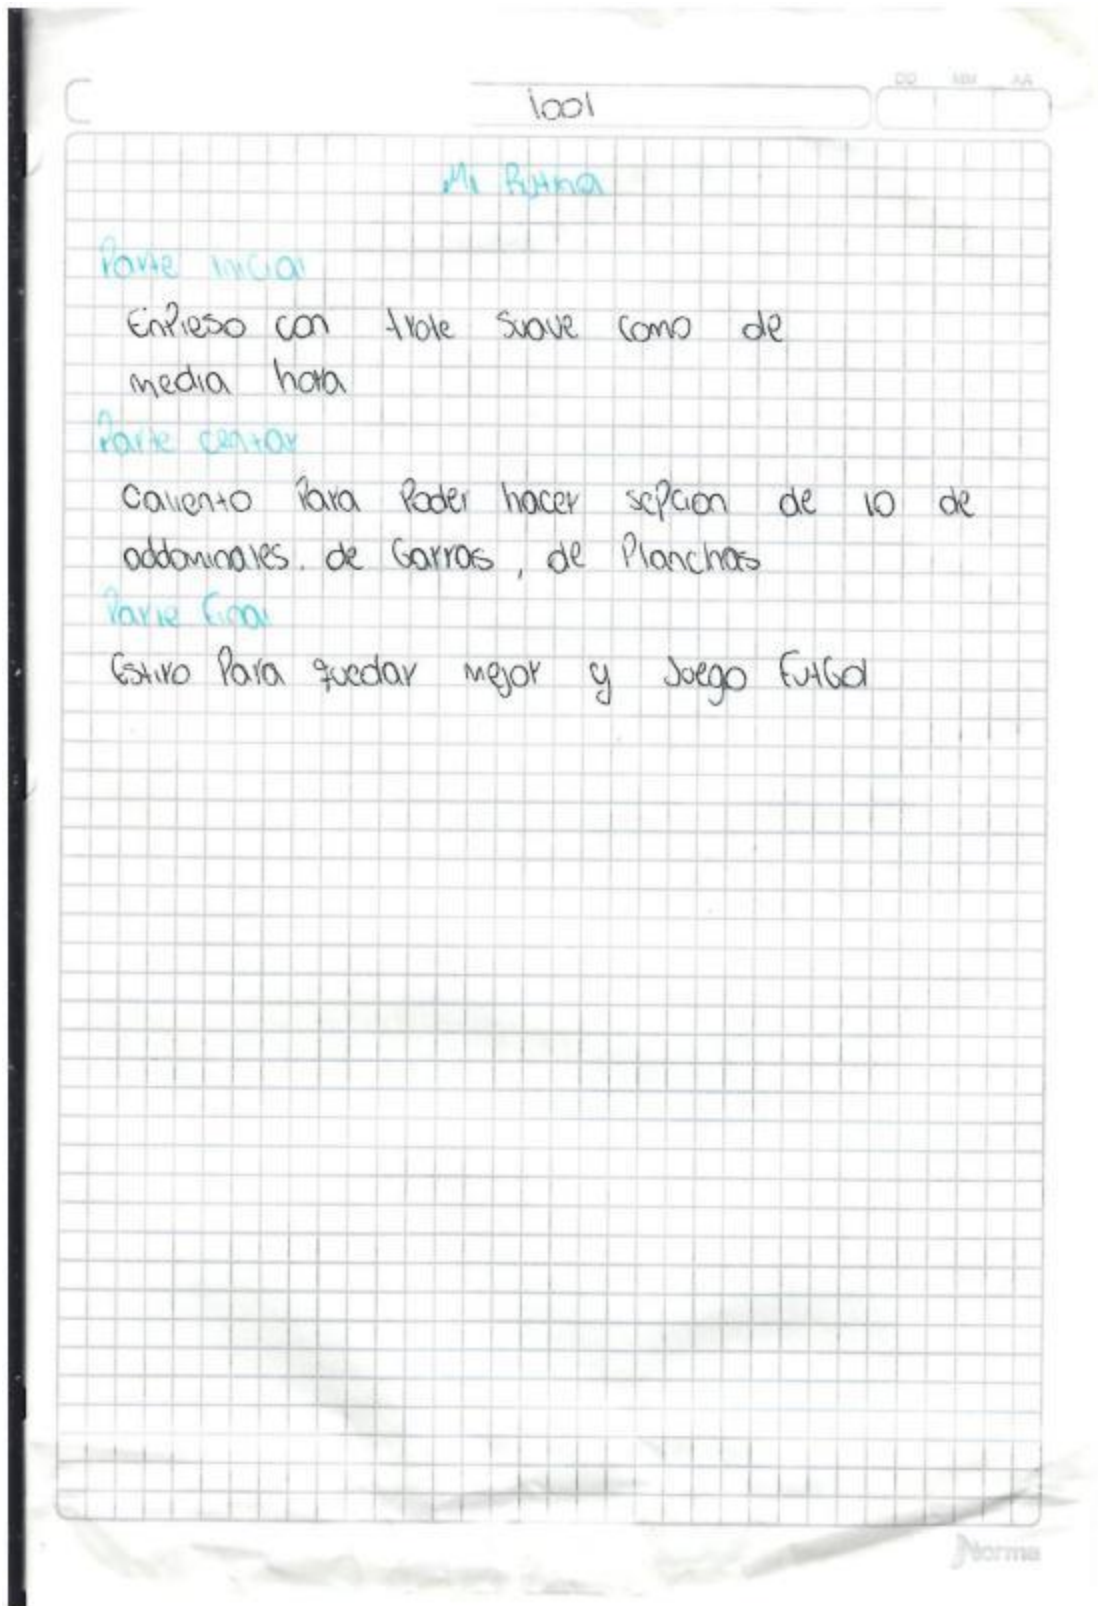 DD MM AA
1001
Mi Rutina
Parte inicial
Enpieso con trote suave como de
media hora
Parte centar
Caliento Para Poder hacer sepcion de 10 de
addominales. de Garras, de Planchas
Parte Final
Estiro Para quedar mejor y Juego FutGol
Norma